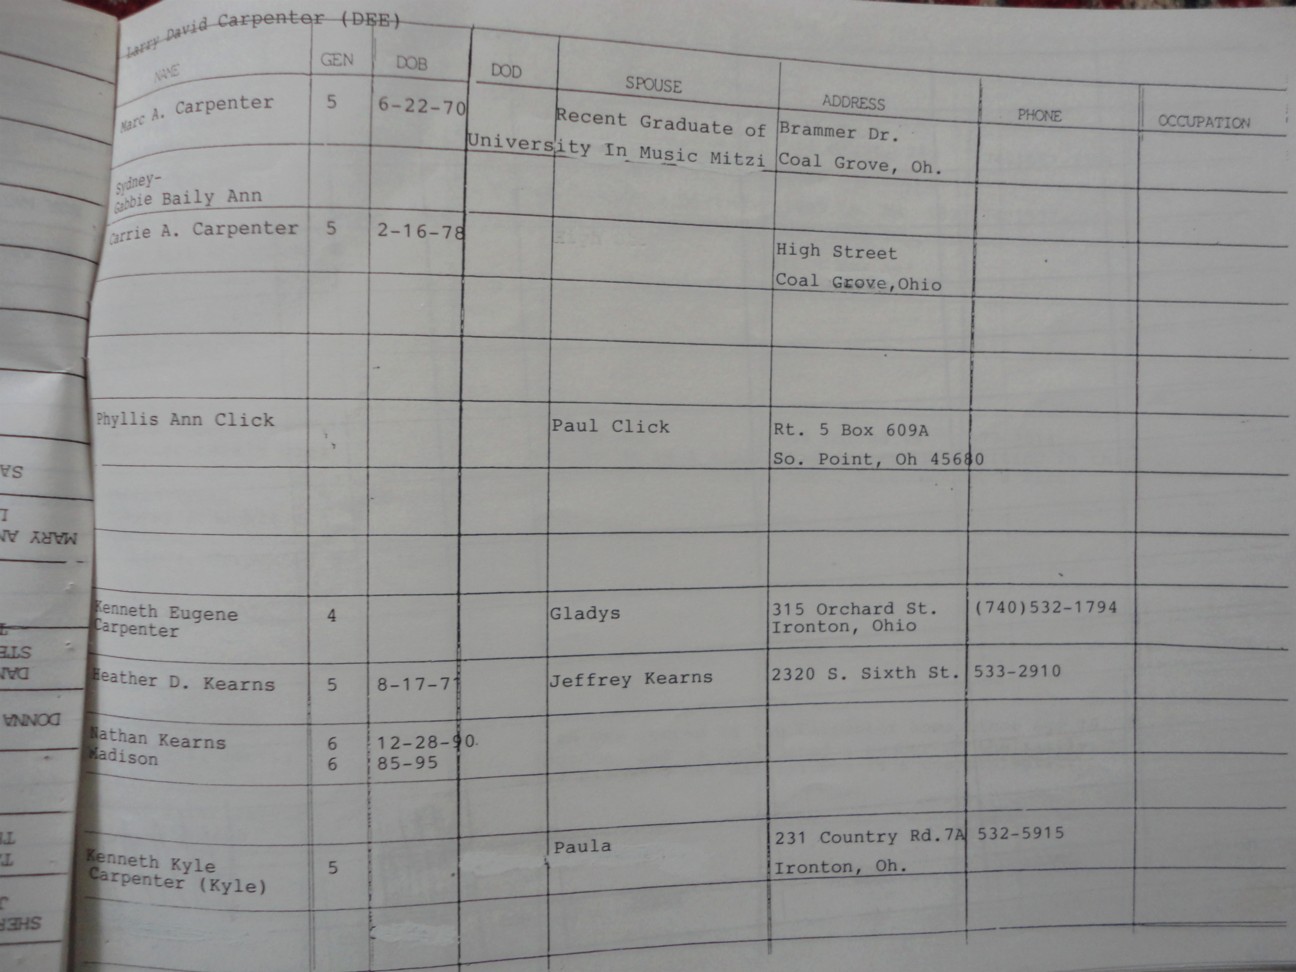 Larry David Carpenter (DEE)
NAME GEN DOB DOD SPOUSE ADDRESS PHONE OCCUPATION
Marc A. Carpenter 5 6-22-70 Recent Graduate of Brammer Dr.
University In Music Mitzi Coal Grove, Oh.
Sydney-
Gabbie Baily Ann
Carrie A. Carpenter 5 2-16-78
High Street
Coal Grove,Ohio
Phyllis Ann Click Paul Click Rt. 5 Box 609A
So. Point, Oh 45680
Kenneth Eugene 4 Gladys 315 Orchard St. (740)532-1794
Carpenter Ironton, Ohio
Heather D. Kearns 5 8-17-71 Jeffrey Kearns 2320 S. Sixth St. 533-2910
Nathan Kearns 6 12-28-90
Madison 6 85-95
Kenneth Kyle 5 Paula 231 Country Rd.7A 532-5915
Carpenter (Kyle) Ironton, Oh.
SA
MARY AN
STE
DAN
DONNA
SHER